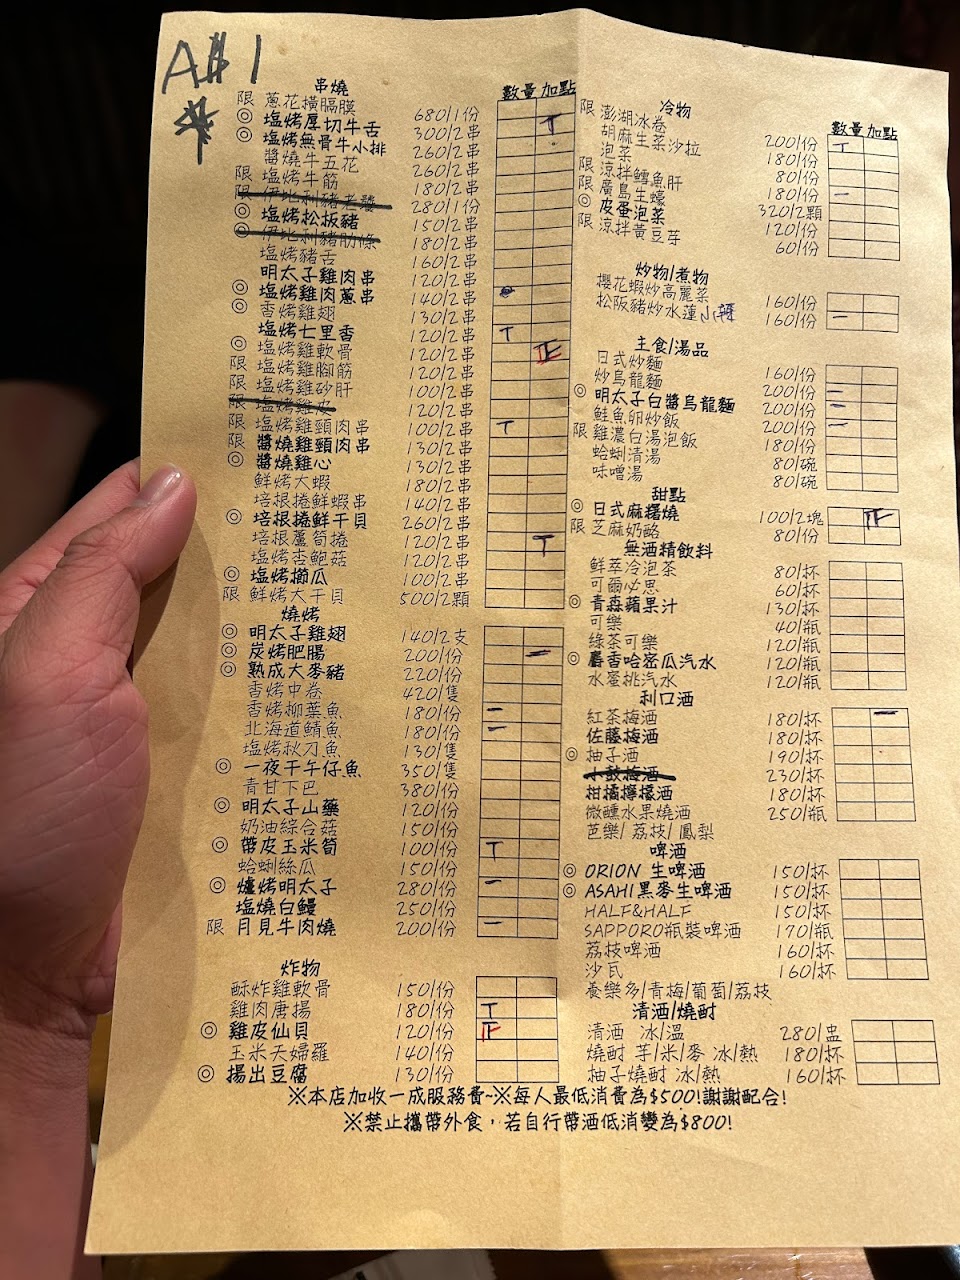 A桌 1
串燒 數量 加點
限 蔥花橫膈膜 680/1份
◎ 塩烤厚切牛舌 300/2串
◎ 塩烤無骨牛小排 260/2串
醬燒牛五花 260/2串
限 塩烤牛筋 180/2串
限 伊比利豬老 280/1份
◎ 塩烤松板豬 150/2串
◎ 伊比利豬肋條 180/2串
塩烤豬舌 160/2串
明太子雞肉串 120/2串
◎ 塩烤雞肉蔥串 140/2串
◎ 香烤雞翅 130/2串
塩烤七里香 120/2串
◎ 塩烤雞軟骨 120/2串
限 塩烤雞腳筋 120/2串
限 塩烤雞砂肝 100/2串
限 塩烤雞皮 120/2串
限 塩烤雞頸肉串 100/2串
限 醬燒雞頸肉串 130/2串
◎ 醬燒雞心 130/2串
鮮烤大蝦 180/2串
培根捲鮮蝦串 140/2串
◎ 培根捲鮮干貝 260/2串
培根蘆筍捲 120/2串
塩烤杏鮑菇 120/2串
◎ 塩烤櫛瓜 100/2串
限 鮮烤大干貝 500/2顆
燒烤
◎ 明太子雞翅 140/2支
◎ 炭烤肥腸 200/份
◎ 熟成大麥豬 220/份
香烤中卷 420/隻
香烤柳葉魚 180/份
北海道鯖魚 180/份
塩烤秋刀魚 130/隻
◎ 一夜干午仔魚 350/隻
青甘下巴 380/份
◎ 明太子山藥 120/份
奶油綜合菇 150/份
◎ 帶皮玉米筍 100/份
蛤蜊絲瓜 150/份
◎ 爐烤明太子 280/份
塩燒白鰻 250/份
限 月見牛肉燒 200/份
炸物
酥炸雞軟骨 150/份
雞肉唐揚 180/份
◎ 雞皮仙貝 120/份
玉米天婦羅 140/份
◎ 揚出豆腐 130/份
冷物 數量 加點
限 澎湖冰卷
胡麻生菜沙拉 200/份
泡菜 80/份
限 涼拌鱈魚肝 180/份
限 廣島生蠔 320/2顆
◎ 皮蛋泡菜 120/份
限 涼拌黃豆芽 60/份
炒物/煮物
櫻花蝦炒高麗菜 160/份
松阪豬炒水蓮 160/份
主食/湯品
日式炒麵 160/份
炒烏龍麵 200/份
◎ 明太子白醬烏龍麵 200/份
鮭魚卵炒飯 200/份
限 雞濃白湯泡飯 180/份
蛤蜊清湯 80/碗
味噌湯 80/碗
甜點
◎ 日式麻糬燒 100/2塊
限 芝麻奶酪 80/份
無酒精飲料
鮮萃冷泡茶 80/杯
可爾必思 60/杯
◎ 青森蘋果汁 130/杯
可樂 40/瓶
綠茶可樂 120/瓶
◎ 麝香哈密瓜汽水 120/瓶
水蜜桃汽水 120/瓶
利口酒
紅茶梅酒 180/杯
佐藤梅酒 180/杯
◎ 柚子酒 190/杯
梅酒 230/杯
柑橘檸檬酒 180/杯
微醺水果燒酒 250/瓶
芭樂/荔枝/鳳梨
啤酒
◎ ORION 生啤酒 150/杯
◎ ASAHI黑麥生啤酒 150/杯
HALF&HALF 150/杯
SAPPORO瓶裝啤酒 170/瓶
荔枝啤酒 160/杯
沙瓦 160/杯
養樂多/青梅/葡萄/荔枝
清酒/燒酎
清酒 冰/溫 280/盅
燒酎 芋/米/麥 冰/熱 180/杯
柚子燒酎 冰/熱 160/杯
※本店加收一成服務費~※每人最低消費為$500!謝謝配合!
※禁止攜帶外食，若自行帶酒低消變為$800!